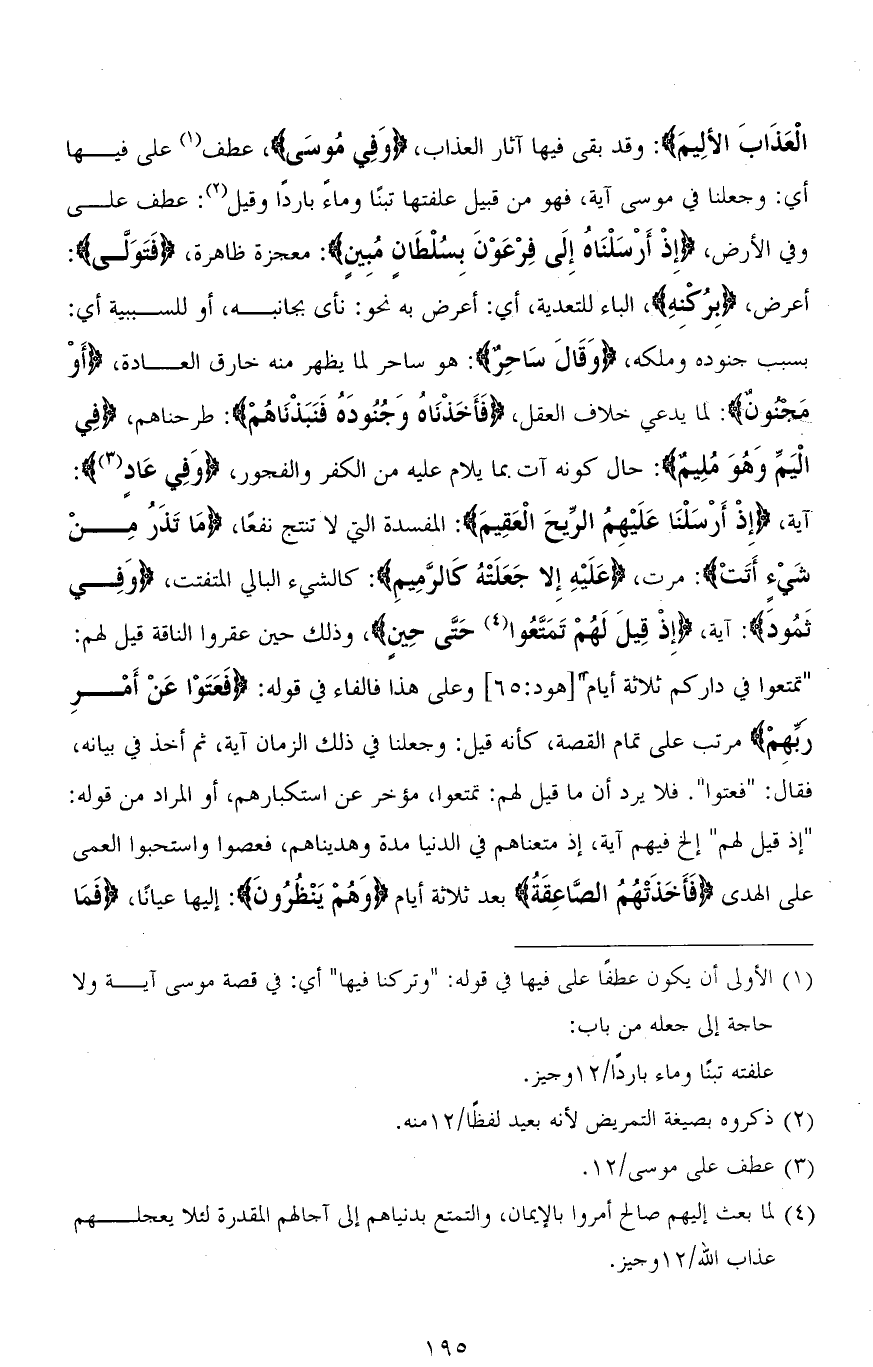 الْعَذَابَ الأَلِيمَ﴾: وقد بقى فيها آثار العذاب، ﴿وَفِي مُوسَى﴾، عطف(١) على فيـــها
أي: وجعلنا في موسى آية، فهو من قبيل علفتها تبنًا وماءً باردًا وقيل(٢): عطف علــى
وفي الأرض، ﴿إِذْ أَرْسَلْنَاهُ إِلَى فِرْعَوْنَ بِسُلْطَانٍ مُبِينٍ﴾: معجزة ظاهرة، ﴿فَتَوَلَّــى﴾:
أعرض، ﴿بِرُكْنِهِ﴾، الباء للتعدية، أي: أعرض به نحو: نأى بجانبــه، أو للســببية أي:
بسبب جنوده وملكه، ﴿وَقَالَ سَاحِرٌ﴾: هو ساحر لما يظهر منه خارق العـــادة، ﴿أَوْ
مَجْنُونٌ﴾: لما يدعي خلاف العقل، ﴿فَأَخَذْنَاهُ وَجُنُودَهُ فَنَبَذْنَاهُمْ﴾: طرحناهم، ﴿فِي
الْيَمِّ وَهُوَ مُلِيمٌ﴾: حال كونه آت بما يلام عليه من الكفر والفجور، ﴿وَفِي عَادٍ(٣)﴾:
آية، ﴿إِذْ أَرْسَلْنَا عَلَيْهِمُ الرِّيحَ الْعَقِيمَ﴾: المفسدة التي لا تنتج نفعًا، ﴿مَا تَذَرُ مِــنْ
شَيْءٍ أَتَتْ﴾: مرت، ﴿عَلَيْهِ إِلا جَعَلَتْهُ كَالرَّمِيمِ﴾: كالشيء البالي المتفتت، ﴿وَفِــي
ثَمُودَ﴾: آية، ﴿إِذْ قِيلَ لَهُمْ تَمَتَّعُوا(٤) حَتَّى حِينٍ﴾، وذلك حين عقروا الناقة قيل لهم:
"تمتعوا في داركم ثلاثة أيام"[هود:٦٥] وعلى هذا فالفاء في قوله: ﴿فَعَتَوْا عَنْ أَمْــرِ
رَبِّهِمْ﴾ مرتب على تمام القصة، كأنه قيل: وجعلنا في ذلك الزمان آية، ثم أخذ في بيانه،
فقال: "فعتوا". فلا يرد أن ما قيل لهم: تمتعوا، مؤخر عن استكبارهم، أو المراد من قوله:
"إذ قيل لهم" إلخ فيهم آية، إذ متعناهم في الدنيا مدة وهديناهم، فعصوا واستحبوا العمى
على الهدى ﴿فَأَخَذَتْهُمُ الصَّاعِقَةُ﴾ بعد ثلاثة أيام ﴿وَهُمْ يَنْظُرُونَ﴾: إليها عيانًا، ﴿فَمَا
(١) الأولى أن يكون عطفًا على فيها في قوله: "وتركنا فيها" أي: في قصة موسى آيــة ولا
حاجة إلى جعله من باب:
علفته تبنًا وماء باردًا/١٢وجيز.
(٢) ذكروه بصيغة التمريض لأنه بعيد لفظًا/١٢منه.
(٣) عطف على موسى/١٢.
(٤) لما بعث إليهم صالح أمروا بالإيمان، والتمتع بدنياهم إلى آجالهم المقدرة لئلا يعجلـــهم
عذاب الله/١٢وجيز.
١٩٥